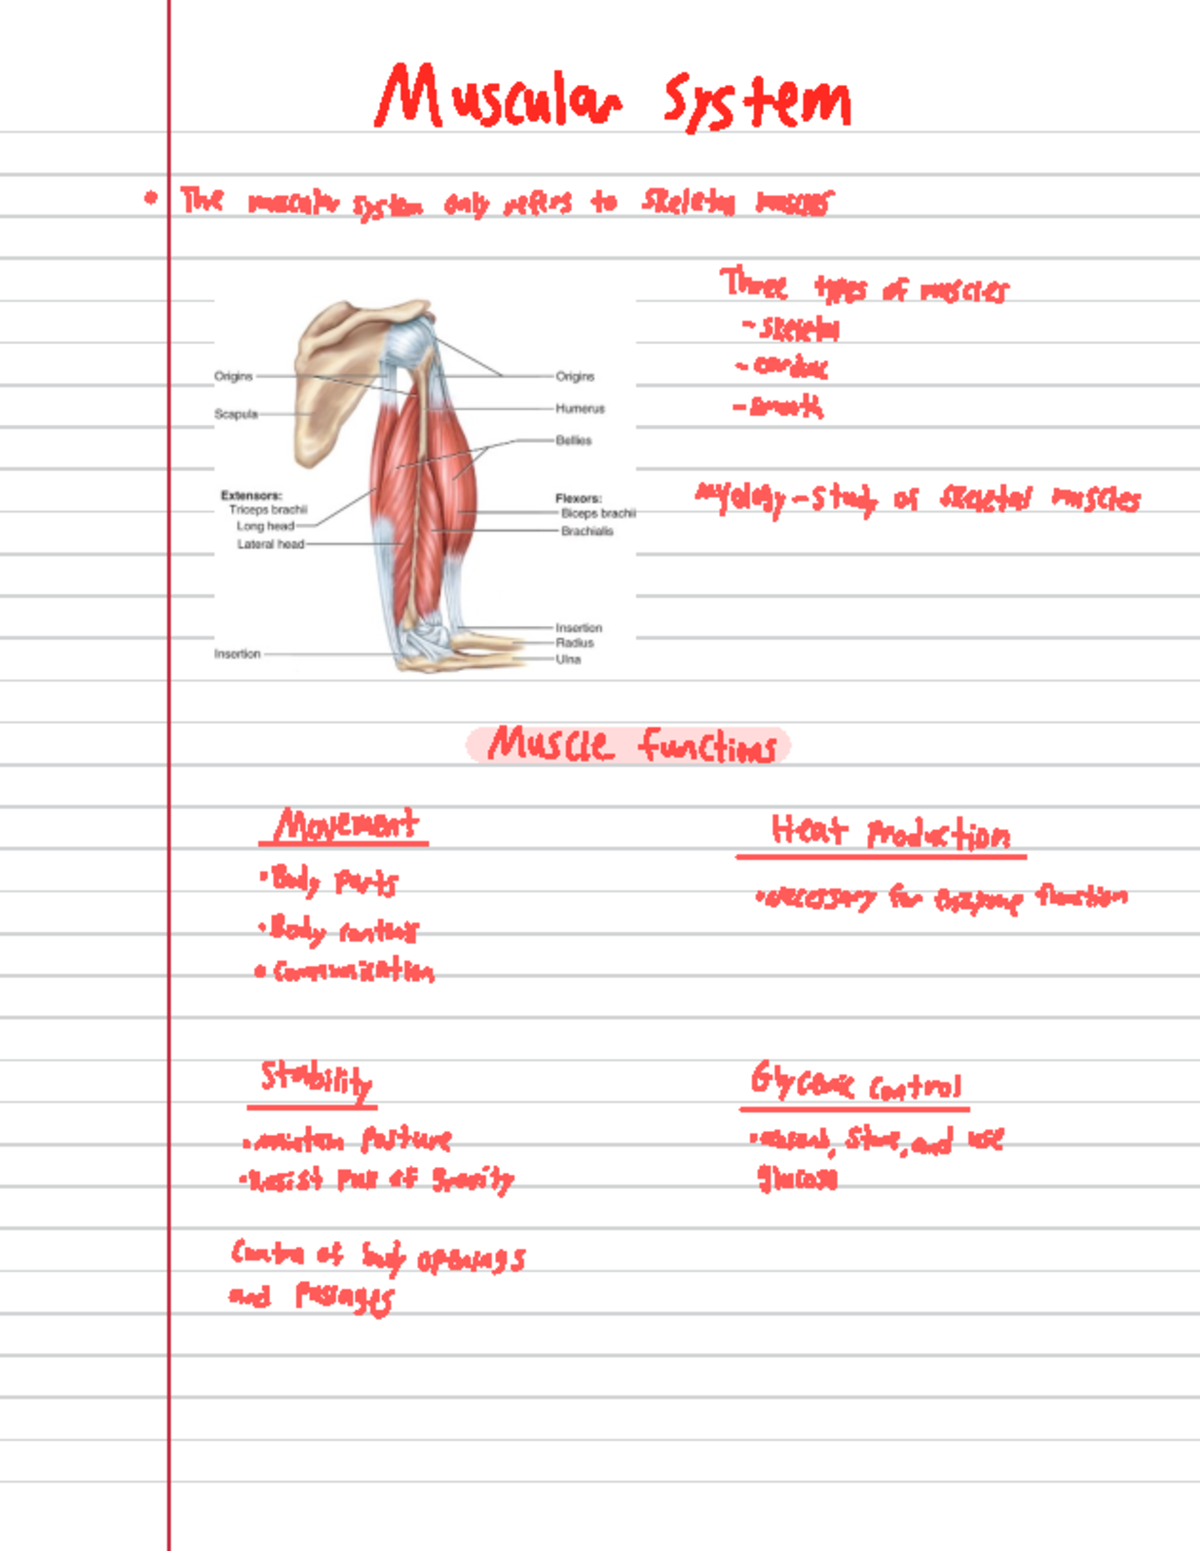 Muscular System
• The muscular system only refers to skeletal muscles
Three types of muscles
- skeletal
- cardiac
- smooth
Myology - Study of skeletal muscles
Origins
Scapula
Extensors:
Triceps brachii
Long head
Lateral head
Insertion
Origins
Humerus
Bellies
Flexors:
Biceps brachii
Brachialis
Insertion
Radius
Ulna
Muscle functions
Movement
• Body parts
• Body contents
• Communication
Heat Production
• necessary for enzyme function
Stability
• maintain posture
• Resist pull of gravity
Glycemic control
• absorb, store, and use
glucose
Control of body openings
and Passages